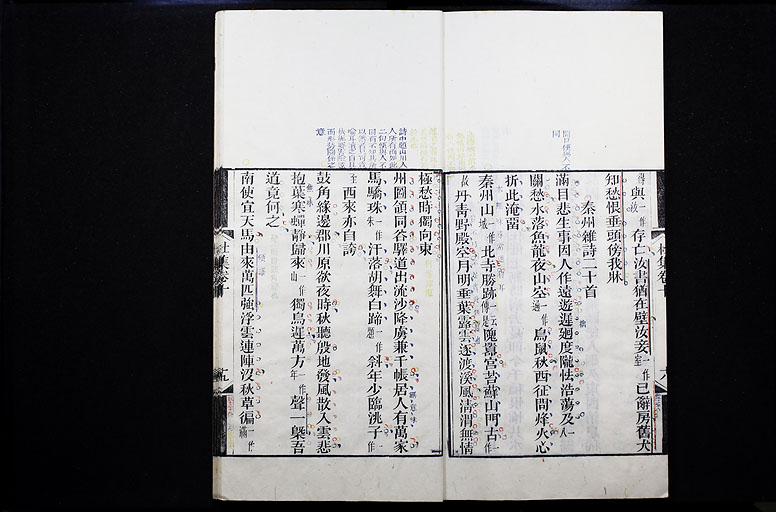 得與一作故存亡汝書猶在壁汝妾一作室已辭房舊犬
知愁恨垂頭傍我牀
秦州雜詩二十首
滿目悲生事因人作遠遊遲迴度隴怯浩蕩及一作入
關愁水落魚龍夜山空一作通鳥鼠秋西征問烽火心
折此淹留
秦州山一作城北寺勝跡一云傳是隗囂宮苔蘚山門古一作
故丹青野殿空月明垂葉露雲逐渡溪風清渭無情
極愁時獨向東
州圖領同谷驛道出流沙降虜兼千帳居人有萬家
馬驕珠一作朱汗落胡舞白蹄一作題斜年少臨洮子一作
至西來亦自誇
鼓角緣邊郡川原欲夜時秋聽殷地發風散入雲悲
抱葉寒蟬靜歸來一作山獨鳥遲萬方一作年聲一槩吾
道竟何之
南使宜天馬由來萬匹強浮雲連陣沒秋草徧一作滿
杜集卷十